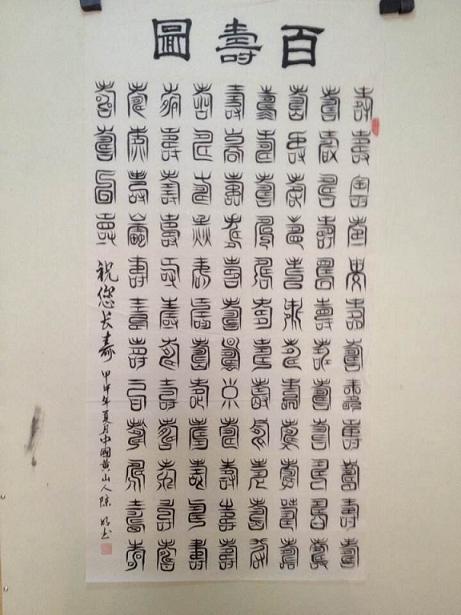 百壽圖
壽壽壽壽壽壽壽壽壽壽壽壽
壽壽壽壽壽壽壽壽壽壽壽壽
壽壽壽壽壽壽壽壽壽壽壽壽
壽壽壽壽壽壽壽壽壽壽壽壽
壽壽壽壽壽壽壽壽壽壽壽壽
壽壽壽壽壽壽壽壽壽壽壽壽
壽壽壽壽壽壽壽壽壽壽壽壽
壽壽壽壽壽壽壽壽壽壽壽壽
壽壽壽壽 祝您长寿 甲申年夏月中國黄山人陈 书